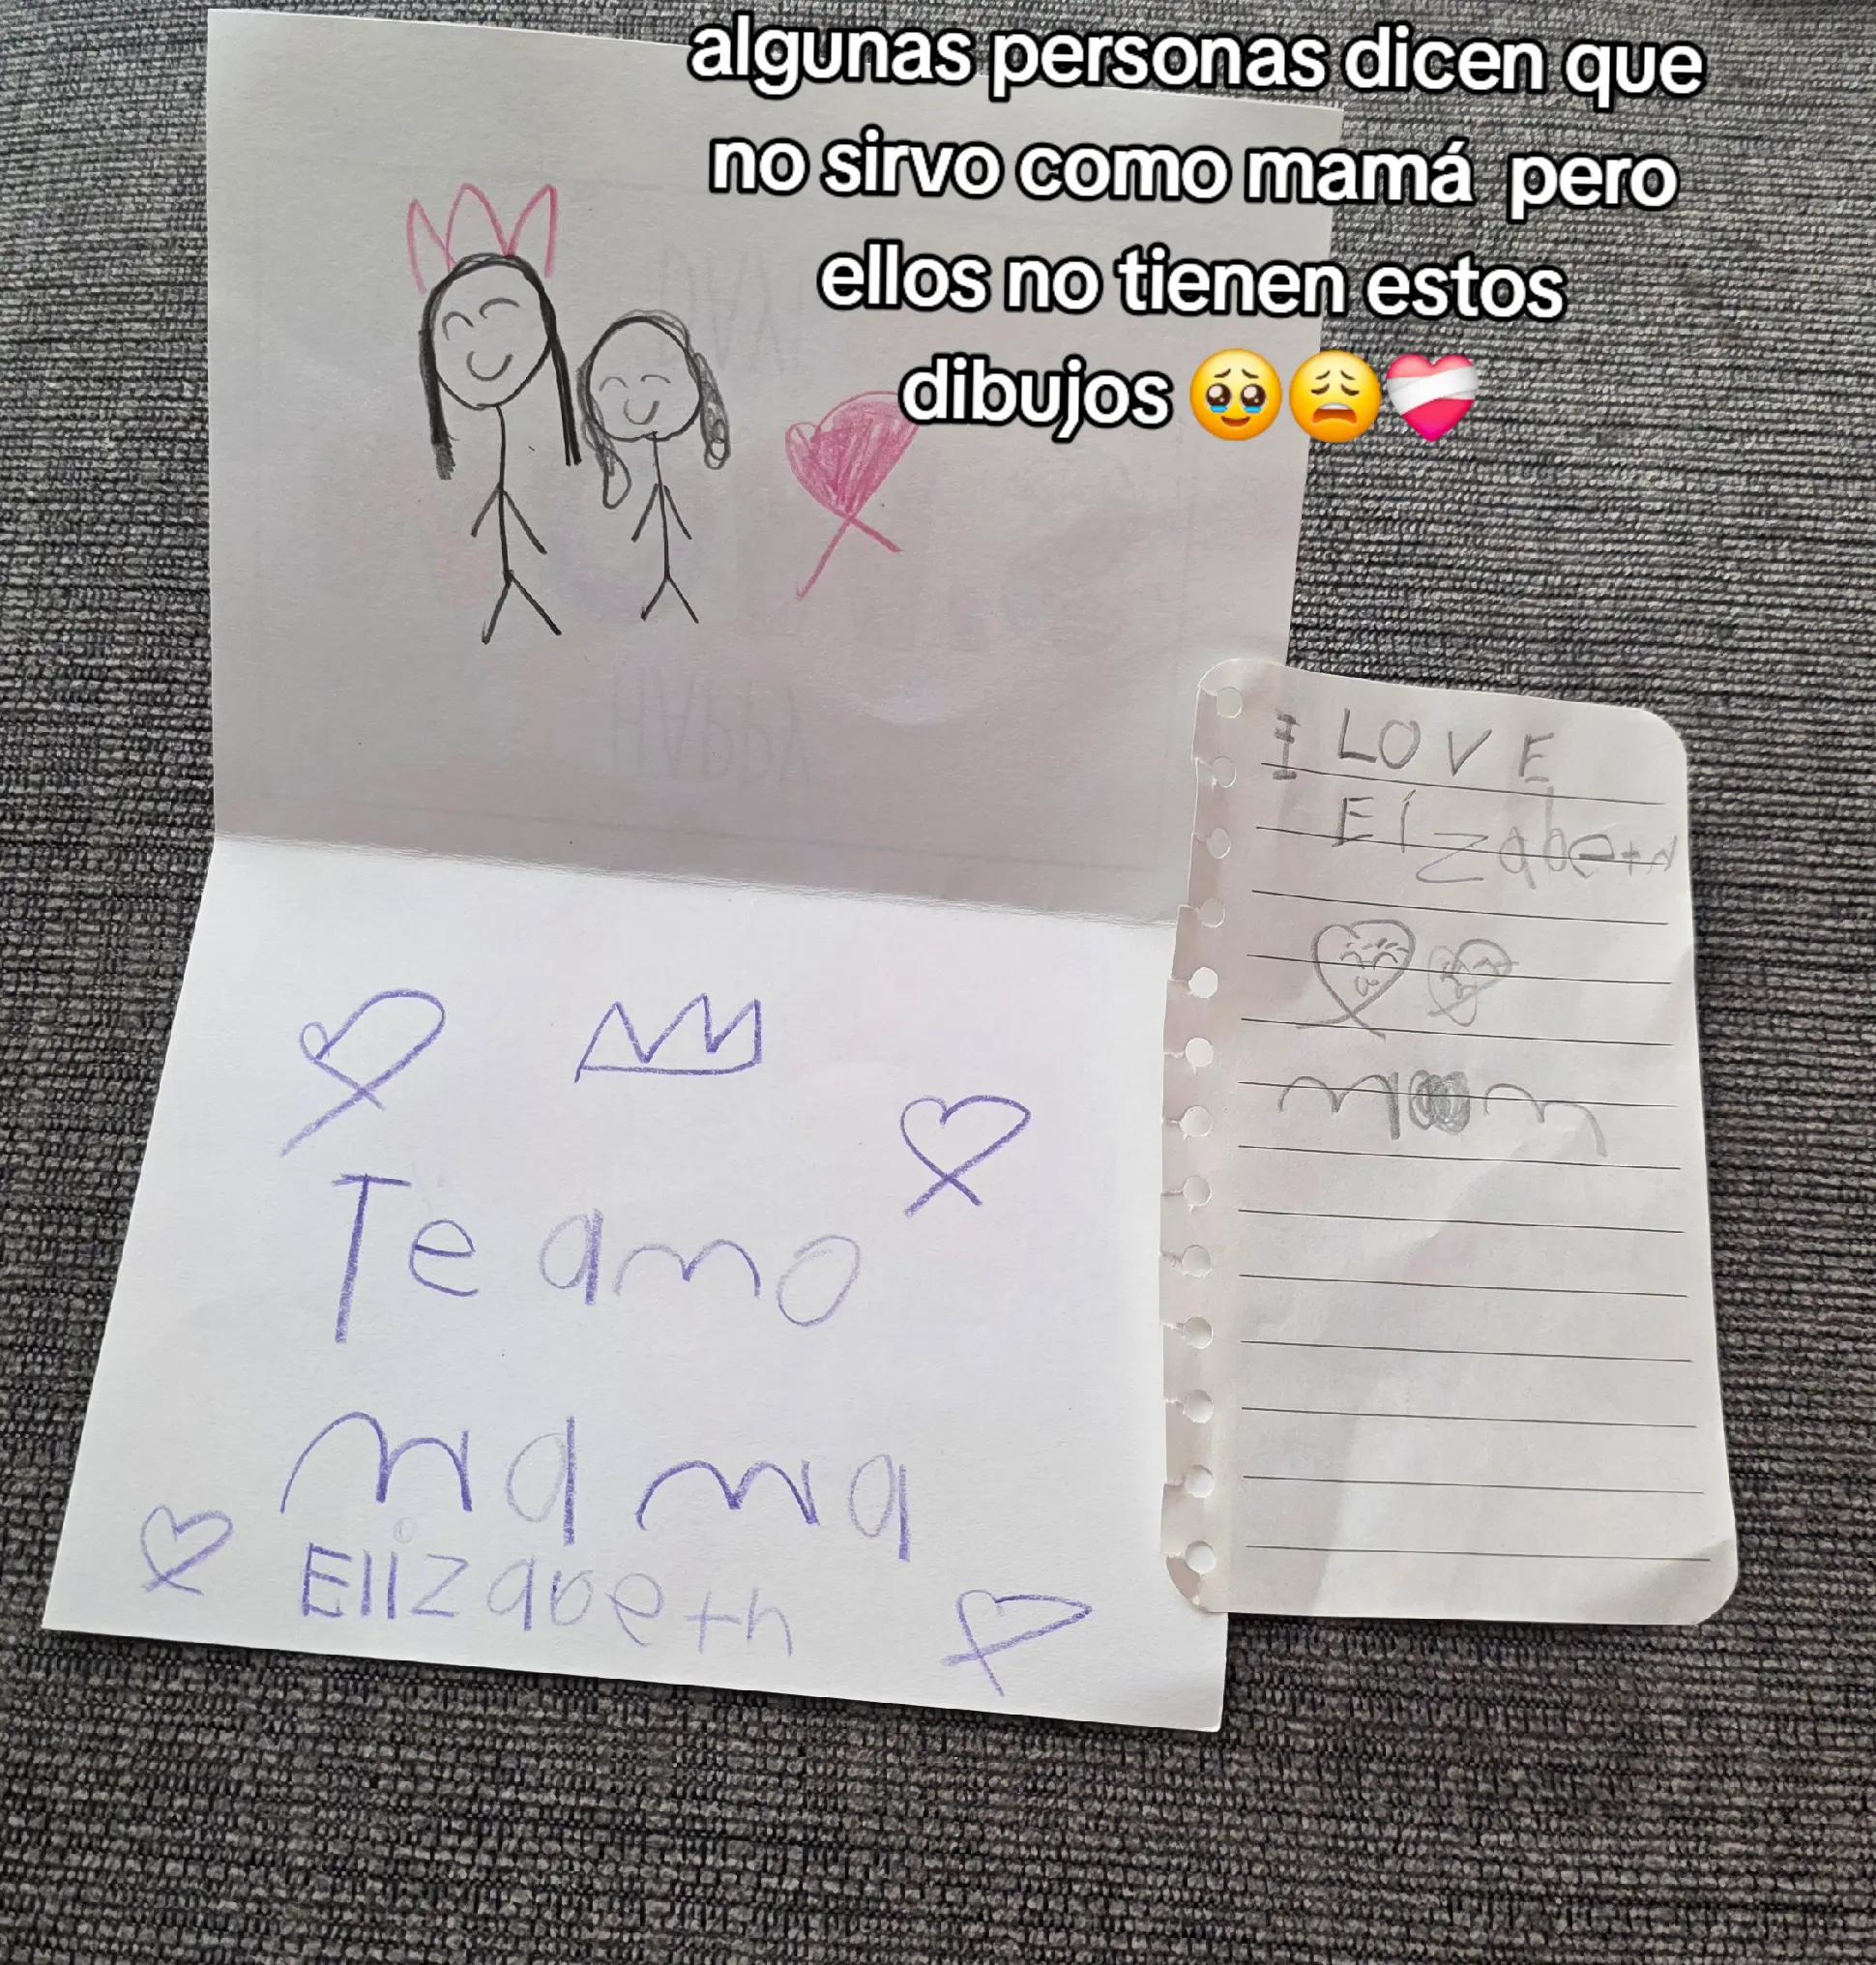 algunas personas dicen que
no sirvo como mamá pero
ellos no tienen estos
dibujos 🥹😩❤️‍🩹
DAY
HAPPY
Te amo
mama
Elizabeth
I LOVE
Elzabeth
mom